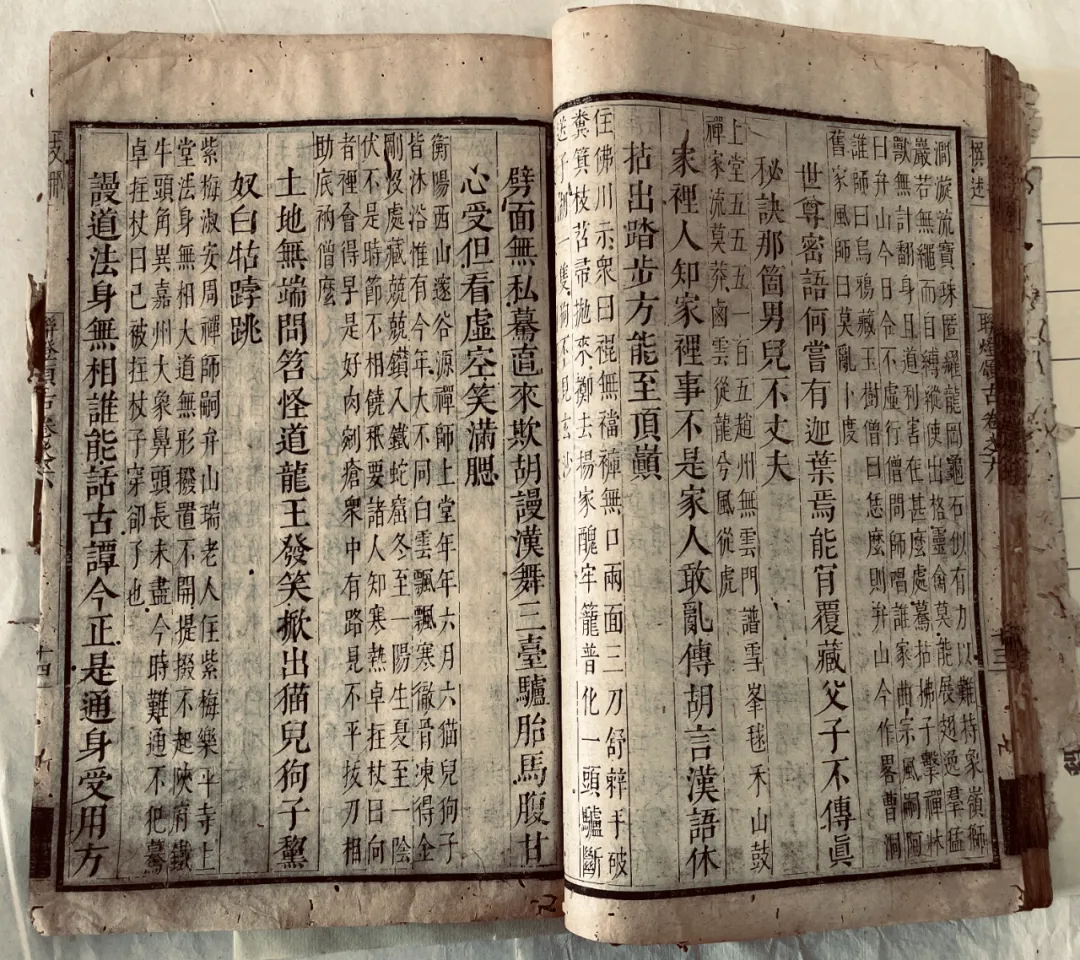 聯燈頌古卷之六
十三
澗漩流寶珠匿耀龍岡龜石似有力以難持象嶺獅
巖若無繩而自縛縱使出格靈禽莫能展翅逸羣猛
獸無計翻身且道利害在甚麼處驀拈拂子擊禪牀
曰弁山今日令不虛行僧問師唱誰家曲宗風嗣阿
誰師曰烏鴉藏玉樹僧曰恁麼則弁山今作畧曹洞
舊家風師曰莫亂卜度
世尊密語何嘗有迦葉焉能肯覆藏父子不傳眞
秘訣那箇男兒不丈夫
上堂五五五一百五趙州無雲門譜雪峯毬禾山鼓
禪家流莫莽鹵雲從龍兮風從虎
家裡人知家裡事不是家人敢亂傳胡言漢語休
拈出踏步方能至頂巔
住佛川示衆曰裩無襠褲無口兩面三刀舒辣手破
糞箕枝苕帚拋來擲去揚家醜牢籠普化一頭驢斷
送子湖一隻狗不見玄沙
劈面無私驀直來欺胡謾漢舞三臺驢胎馬腹甘
心受但看虛空笑滿腮
衡陽西山邃谷源禪師上堂年年六月六猫兒狗子
皆沐浴惟有今年大不同白雲飄飄寒徹骨凍得金
剛沒處藏兢兢鑽入鐵蛇窟冬至一陽生夏至一陰
伏不是時節不相饒秪要諸人知寒熱卓拄杖曰向
者裡會得早是好肉剜瘡衆中有路見不平拔刀相
助底衲僧麼
土地無端問笤怪道龍王發笑掀出猫兒狗子黧
奴白牯踍跳
紫梅淑安周禪師嗣弁山瑞老人住紫梅樂平寺上
堂法身無相大道無形撥置不開提掇不起陝府鐵
牛頭角異嘉州大象鼻頭長未盡今時難通不犯驀
卓拄杖曰已被拄杖子穿卻了也
謾道法身無相誰能話古譚今正是通身受用方
十四